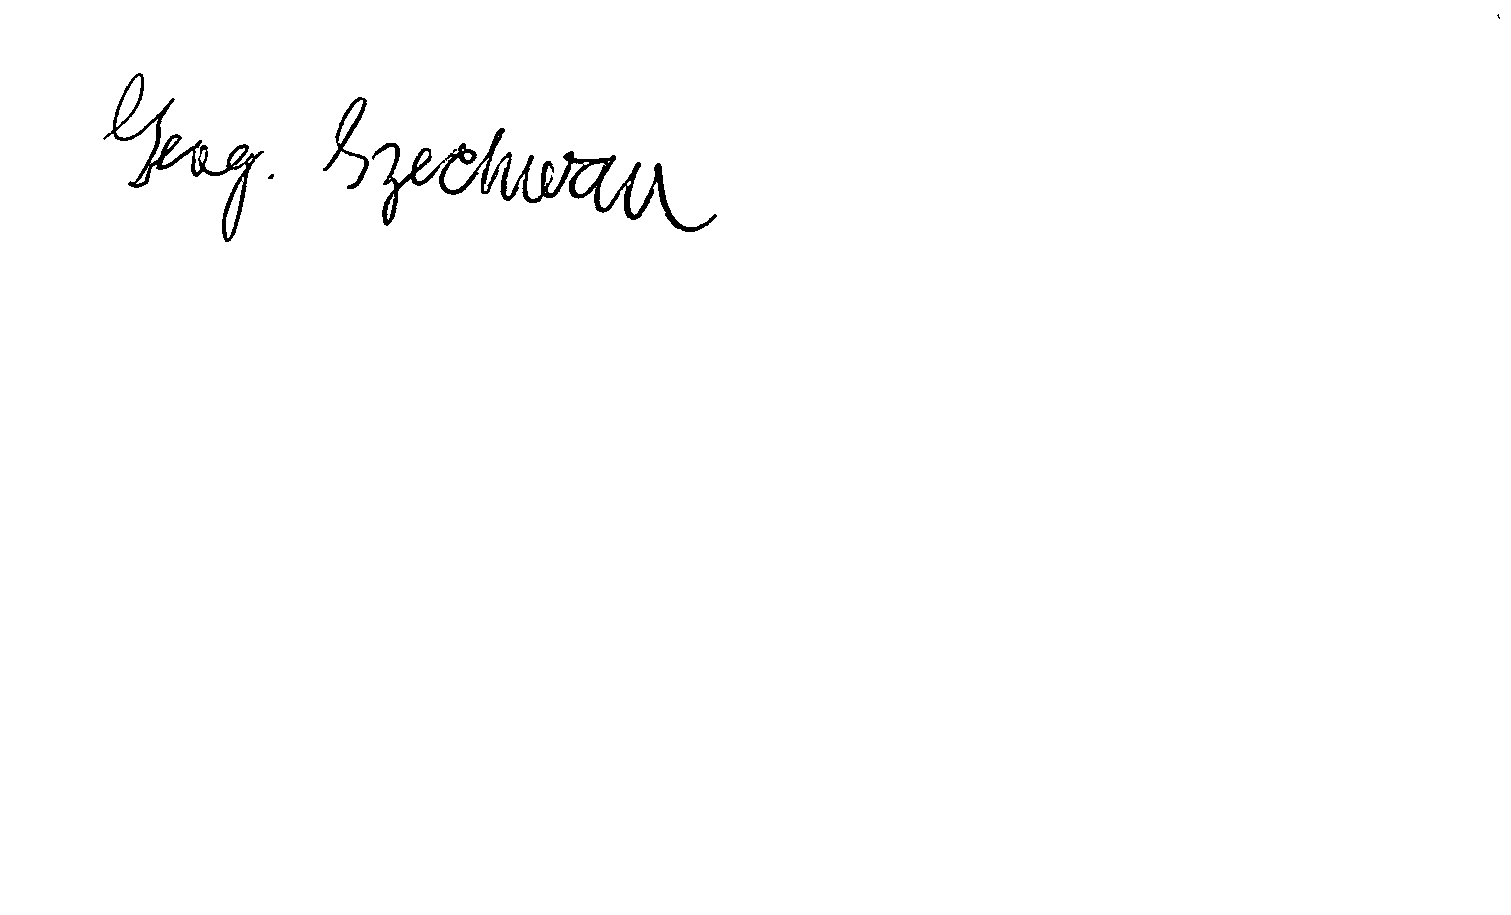 Geog. Szechwan